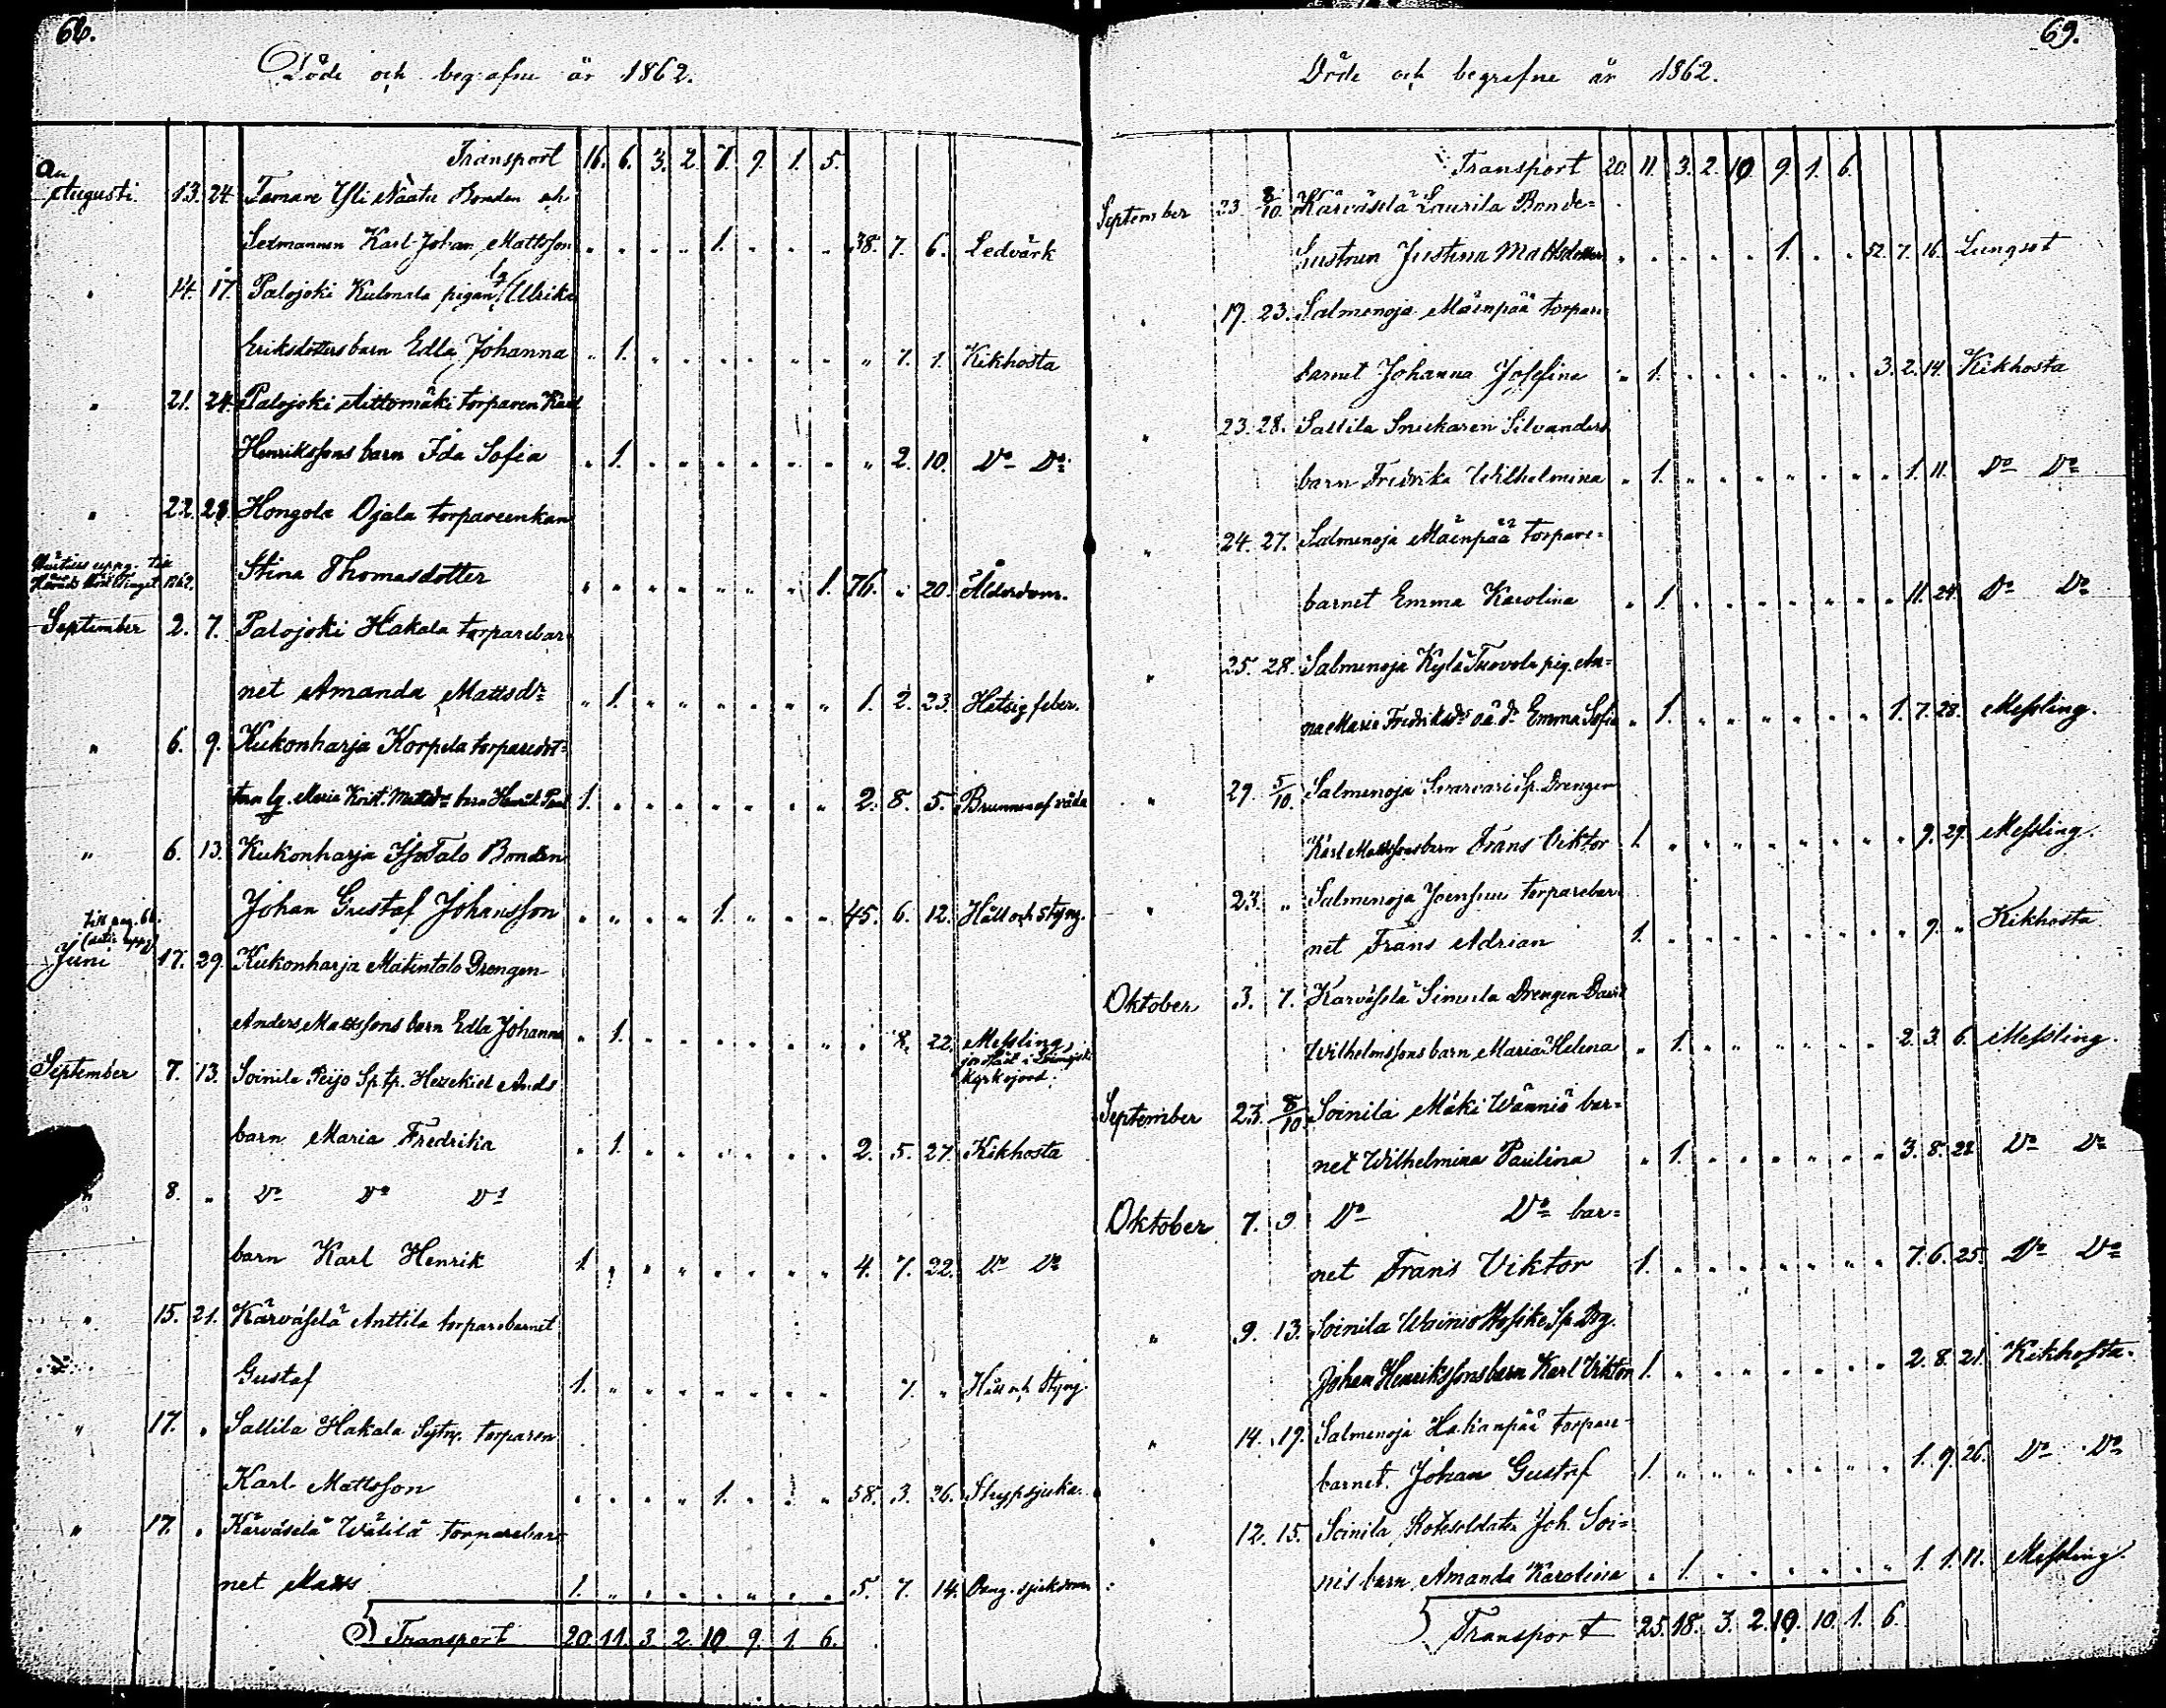 68.
Döde och begrafne år 1862.
Transport 16. 6. 3. 2. 7. 9. 1. 5.
Augusti. 13. 24. Tamare Yli Naatu Bonden och
Sexmannen Karl Johan Mattsson " " " " 1. " " " 38. 7. 6. Ledvärk
" 14. 17. Palojoki Kulmala pigan Ulrika
Eriksdotters barn Edla Johanna " 1. " " " " " " " 7. 1. Kikhosta
" 21. 24. Palojoki Aittomäki torparen Karl
Henrikssons barn Ida Sofia " 1. " " " " " " " 2. 10. Do Do
" 22. 28. Hongola Ojala torpareenkan
Stina Thomasdotter " " " " " " " 1. 76. " 20. Ålderdom.
September 2. 7. Palojoki Hakala torparebar-
net Amanda Mattsdr " 1. " " " " " " 1. 2. 23. Hetsig feber.
" 6. 9. Kukonharja Korpela torparedot-
Maria 1. " " " " " " " 2. 8. 5. Brunnen af våda
" 6. 13. Kukonharja Iso Talo Bonden
Johan Gustaf Johansson " " " " 1. " " " 45. 6. 12. Håll och styng.
till pag. 66.
Juni 17. 29. Kukonharja Matintalo Drengen
Anders Mattssons barn Edla Johanna " 1. " " " " " " " 8. 22. Messling
September 7. 13. Soinila Peijo Sp. tp. Hezekiel Ands
barn Maria Fredrika " 1. " " " " " " 2. 5. 27. Kikhosta
" 8. " Do Do Do
barn Karl Henrik 1. " " " " " " " 4. 7. 22. Do Do
" 15. 21. Kärväselä Anttila torparebarnet
Gustaf 1. " " " " " " " 7. " Håll och Styng.
" 17. " Sallila Hakala Sytn. torparen
Karl Mattsson " " " " 1. " " " 58. 3. 26. Strypsjuka.
" 17. " Kärväselä Wälilä torparebar-
net Matts 1. " " " " " " " 5. 7. 14. sjukdom
Transport 20. 11. 3. 2. 10. 9. 1. 6.
69.
Döde och begrefne år 1862.
Transport 20. 11. 3. 2. 10. 9. 1. 6.
September 23. 8/10. Kärväselä Laurila Bonde-
hustrun Justina Mattsdotter " " " " " 1. " " 52. 7. 16. Lungsot
" 19. 23. Salmenoja Mäenpää torpare
barnet Johanna Josefina " 1. " " " " " " 3. 2. 14. Kikhosta
" 23. 28. Sallila Snickaren Silvanders
barn Fredrika Wilhelmina " 1. " " " " " " " 1. 11. Do Do
" 24. 27. Salmenoja Mäenpää torpare-
barnet Emma Karolina " 1. " " " " " " " 11. 24. Do Do
" 25. 28. Salmenoja Kylä Tuovola pig. An-
na Maria Fredriksdr oä dr Emma Sofia " 1. " " " " " " 1. 7. 28. Messling.
" 29. 5/10. Salmenoja Sp. Drengen
Karl Mattssons barn Frans Viktor 1. " " " " " " " " 9. 29. Messling.
" 23. " Salmenoja Joensuu torparebar-
net Frans Adrian 1. " " " " " " " " 9. " Kikhosta
Oktober 3. 7. Karväselä Simula Drengen David
Wilhelmssons barn Maria Helena " 1. " " " " " " 2. 3. 6. Messling.
September 23. 8/10. Soinila Mäki Wänniä bar-
net Wilhelmina Paulina " 1. " " " " " " 3. 8. 22. Do Do
Oktober 7. 9. Do Do bar-
net Frans Viktor 1. " " " " " " " 7. 6. 25. Do Do
" 9. 13. Soinila Wainio Sp. Drg.
Johan Henrikssons barn Karl Viktor 1. " " " " " " " 2. 8. 21. Kikhosta.
" 14. 19. Salmenoja Hakanpää torpare-
barnet Johan Gustaf 1. " " " " " " " 1. 9. 26. Do Do
" 12. 15. Soinila Rotesoldaten Joh. Soi-
nis barn Amanda Karolina " 1. " " " " " " 1. 1. 17. Messling.
Transport 25. 18. 3. 2. 10. 10. 1. 6.